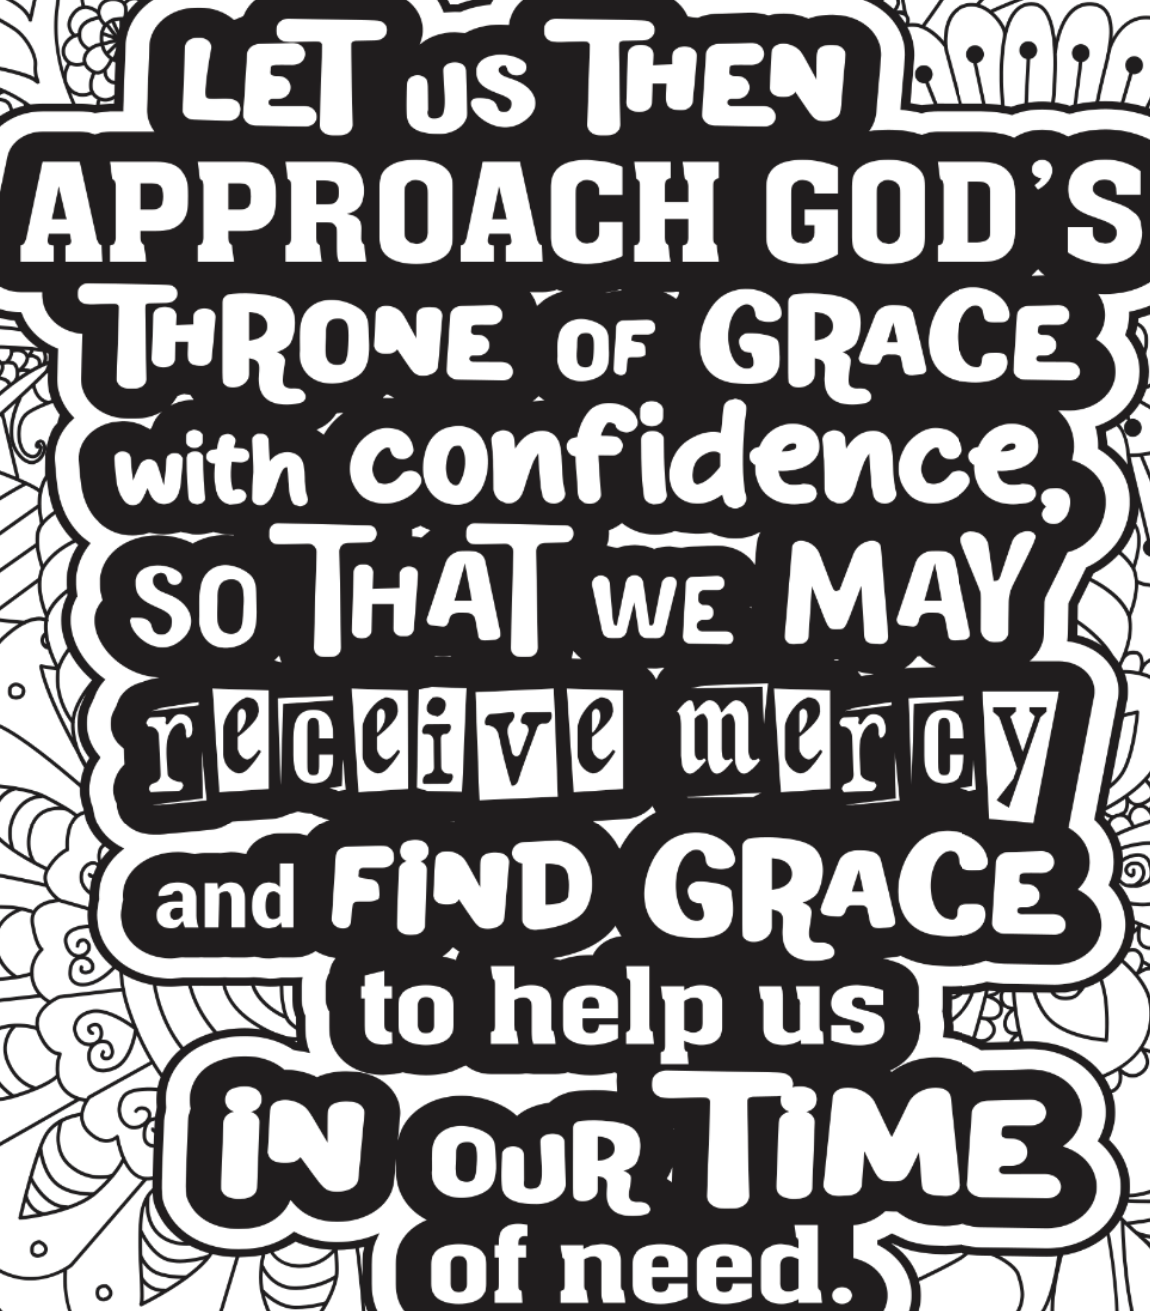 LET US THEN
APPROACH GOD'S
THRONE OF GRACE
with confidence,
SO THAT WE MAY
receive mercy
and FiND GRACE
to help us
iN OUR TiME
of need.